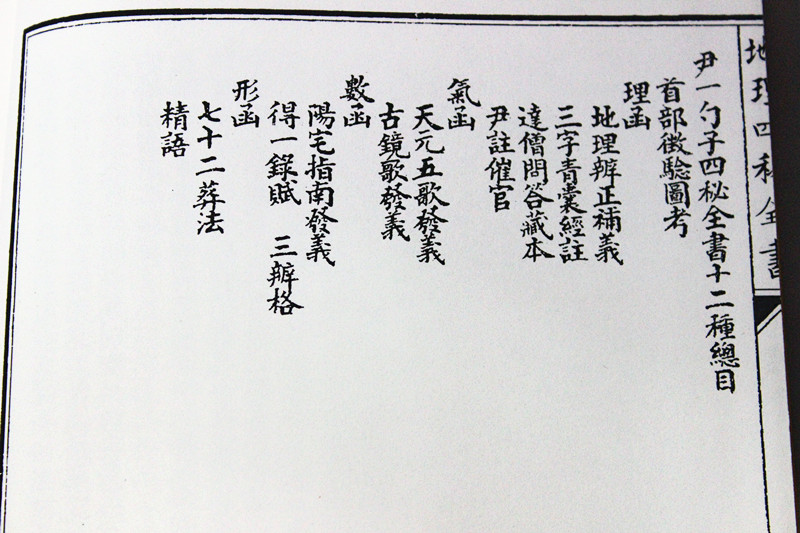 地理四秘全書
尹一勺子四秘全書十二種總目
首部徵驗圖考
理函
地理辨正補義
三字青囊經註
達僧問答藏本
尹註催官
氣函
天元五歌發義
古鏡歌發義
數函
陽宅指南發義
得一錄賦 三辨格
形函
七十二葬法
精語